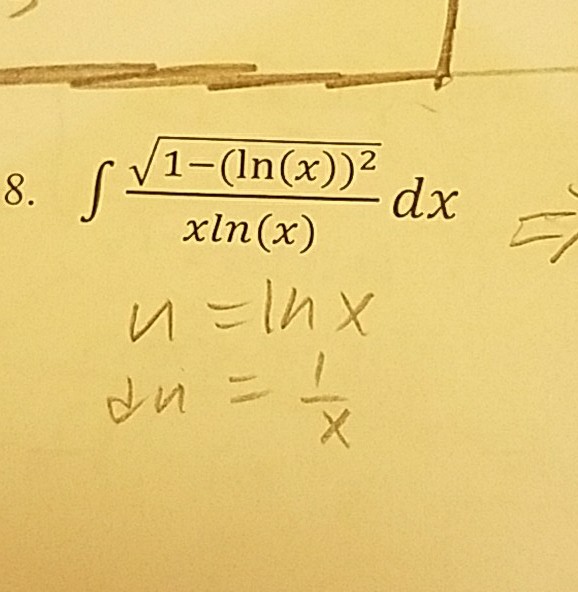 8. ∫ √(1−(ln(x))²) / xln(x) dx ⇒
u = ln x
du = 1/x